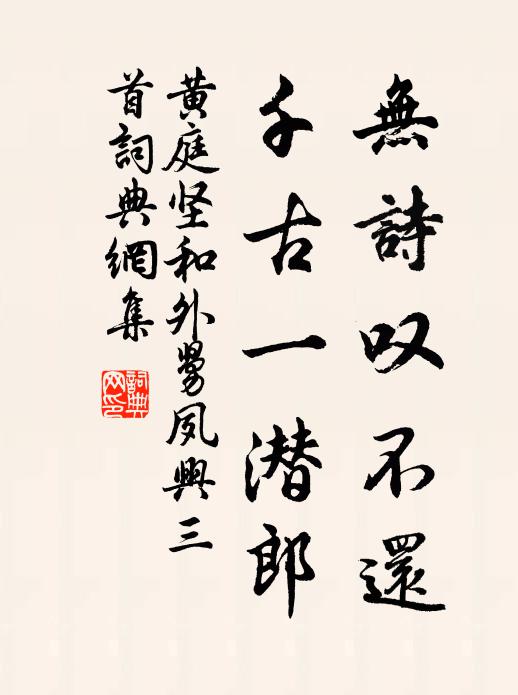 無詩叹不還
千古一潜郎
黄庭坚和外舅夙興三
首詞典網集
詞典网印